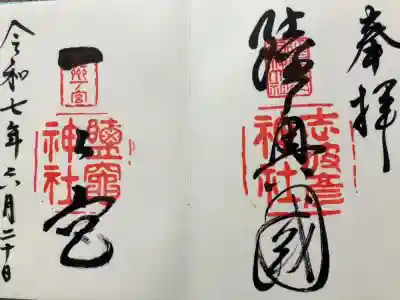 奉拝
陸奥國
志波彦
神社
一之宮
鹽竈
神社
令和七年六月二十日